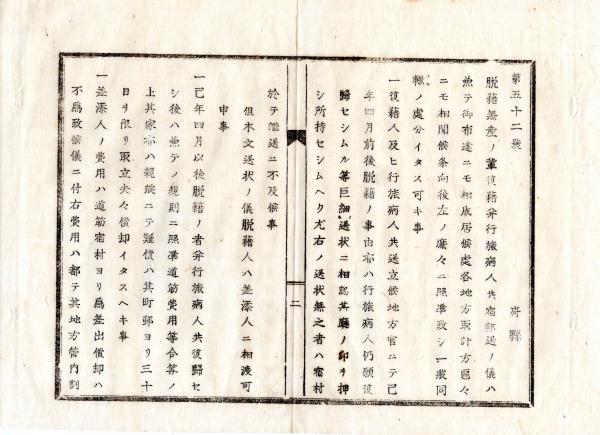 第五十二號
府縣
脱籍無産ノ輩復籍并行旅病人共宿郵送ノ儀ハ
兼テ御布達ニモ相成居候處各地方取計方區々
ニモ相聞候条向後左ノ廉々ニ照準致シ一般同
轍ノ處分イタス可キ事
一復籍人及ヒ行旅病人共送立候地方官ニテ己
年四月前後脱籍ノ事由亦ハ行旅病人仍願復
歸セシムル等巨細送状ニ相認其廳ノ印ヲ押
シ所持セシムヘク尤右ノ送状無之者ハ宿村
二
於テ繼送ニ不及候事
但本文送状ノ儀脱籍人ハ差添人ニ相渡可
申事
一己年四月以後脱籍ノ者并行旅病人共復歸セ
シ後ハ兼テノ規則ニ照準道筋費用等合算ノ
上其家亦ハ親族ニテ難償ハ其町郵ヨリ三十
日ヲ限リ取立夫々償却イタスヘキ事
一差添人ノ費用ハ道筋宿村ヨリ爲差出償却ハ
不爲致候儀ニ付右費用ハ都テ其地方管内割